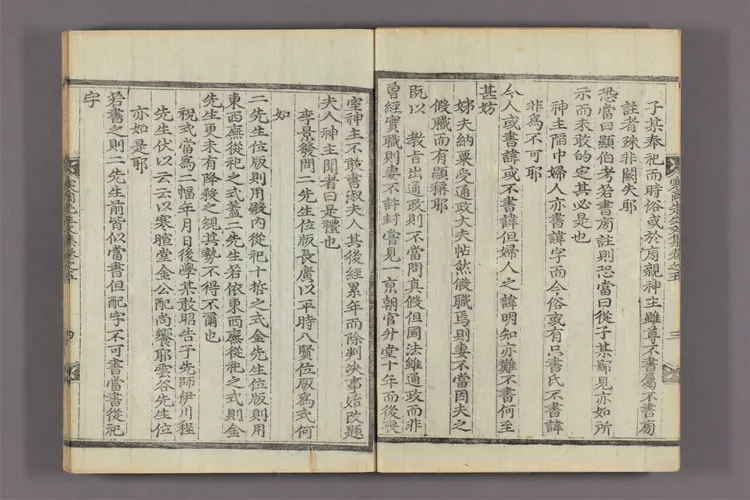 子某奉祀而時俗或於旁親神主雖尊不書屬不書旁
註者殊非闕失耶
恐當曰顯伯考若書旁註則恐當曰從子某鄙見亦如所
示而未敢的定其必是也
神主陷中婦人亦書諱字而今俗或有只書氏不書諱
非爲不可耶
今人或書諱或不書諱但婦人之諱明知亦難不書何至
甚妨
姊夫納粟受通政大夫帖然假職焉則妻不當因夫之
假職而有顯稱耶
既以 教旨出通政則不當問真假但國法雖通政而非
曾經實職則妻不許封嘗見一京朝官升堂十年而後喪
室神主不敢書淑夫人其後經累年而除判决事始改題
夫人神主聞者曰是禮也
李景發問二先生位版長廣以平時八賢位版爲式何
如
二先生位版則用殿內從祀十哲之式金先生位版則用
東西廡從祀之式蓋二先生若依東西廡從祀之式則金
先生更未有降殺之規其勢不得不爾也
祝式當爲二幅年月日後學某敢昭告于先師伊川程
先生伏以云云以寒暄堂金公配尚饗耶雲谷先生位
亦如是耶
若書之則二先生前皆似當書但配字不可書當書從祀
字
卷之五
三
四